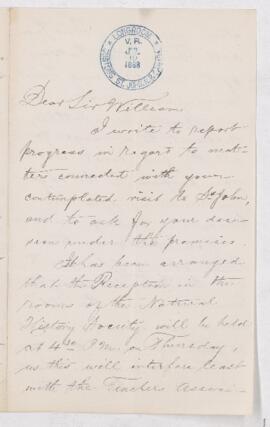 LONGROOM
V. R.
1898
Dear Sir William
I write to report
progress in regard to mat-
ters connected with your
contemplated visit to St John,
and to ask for your deci-
sion under the premises.
It has been arranged
that the Reception in the
rooms of the Natural
History Society will be held
at 4 30 P.M. on Thursday,
as this will interfere least
with the Teachers Associ-